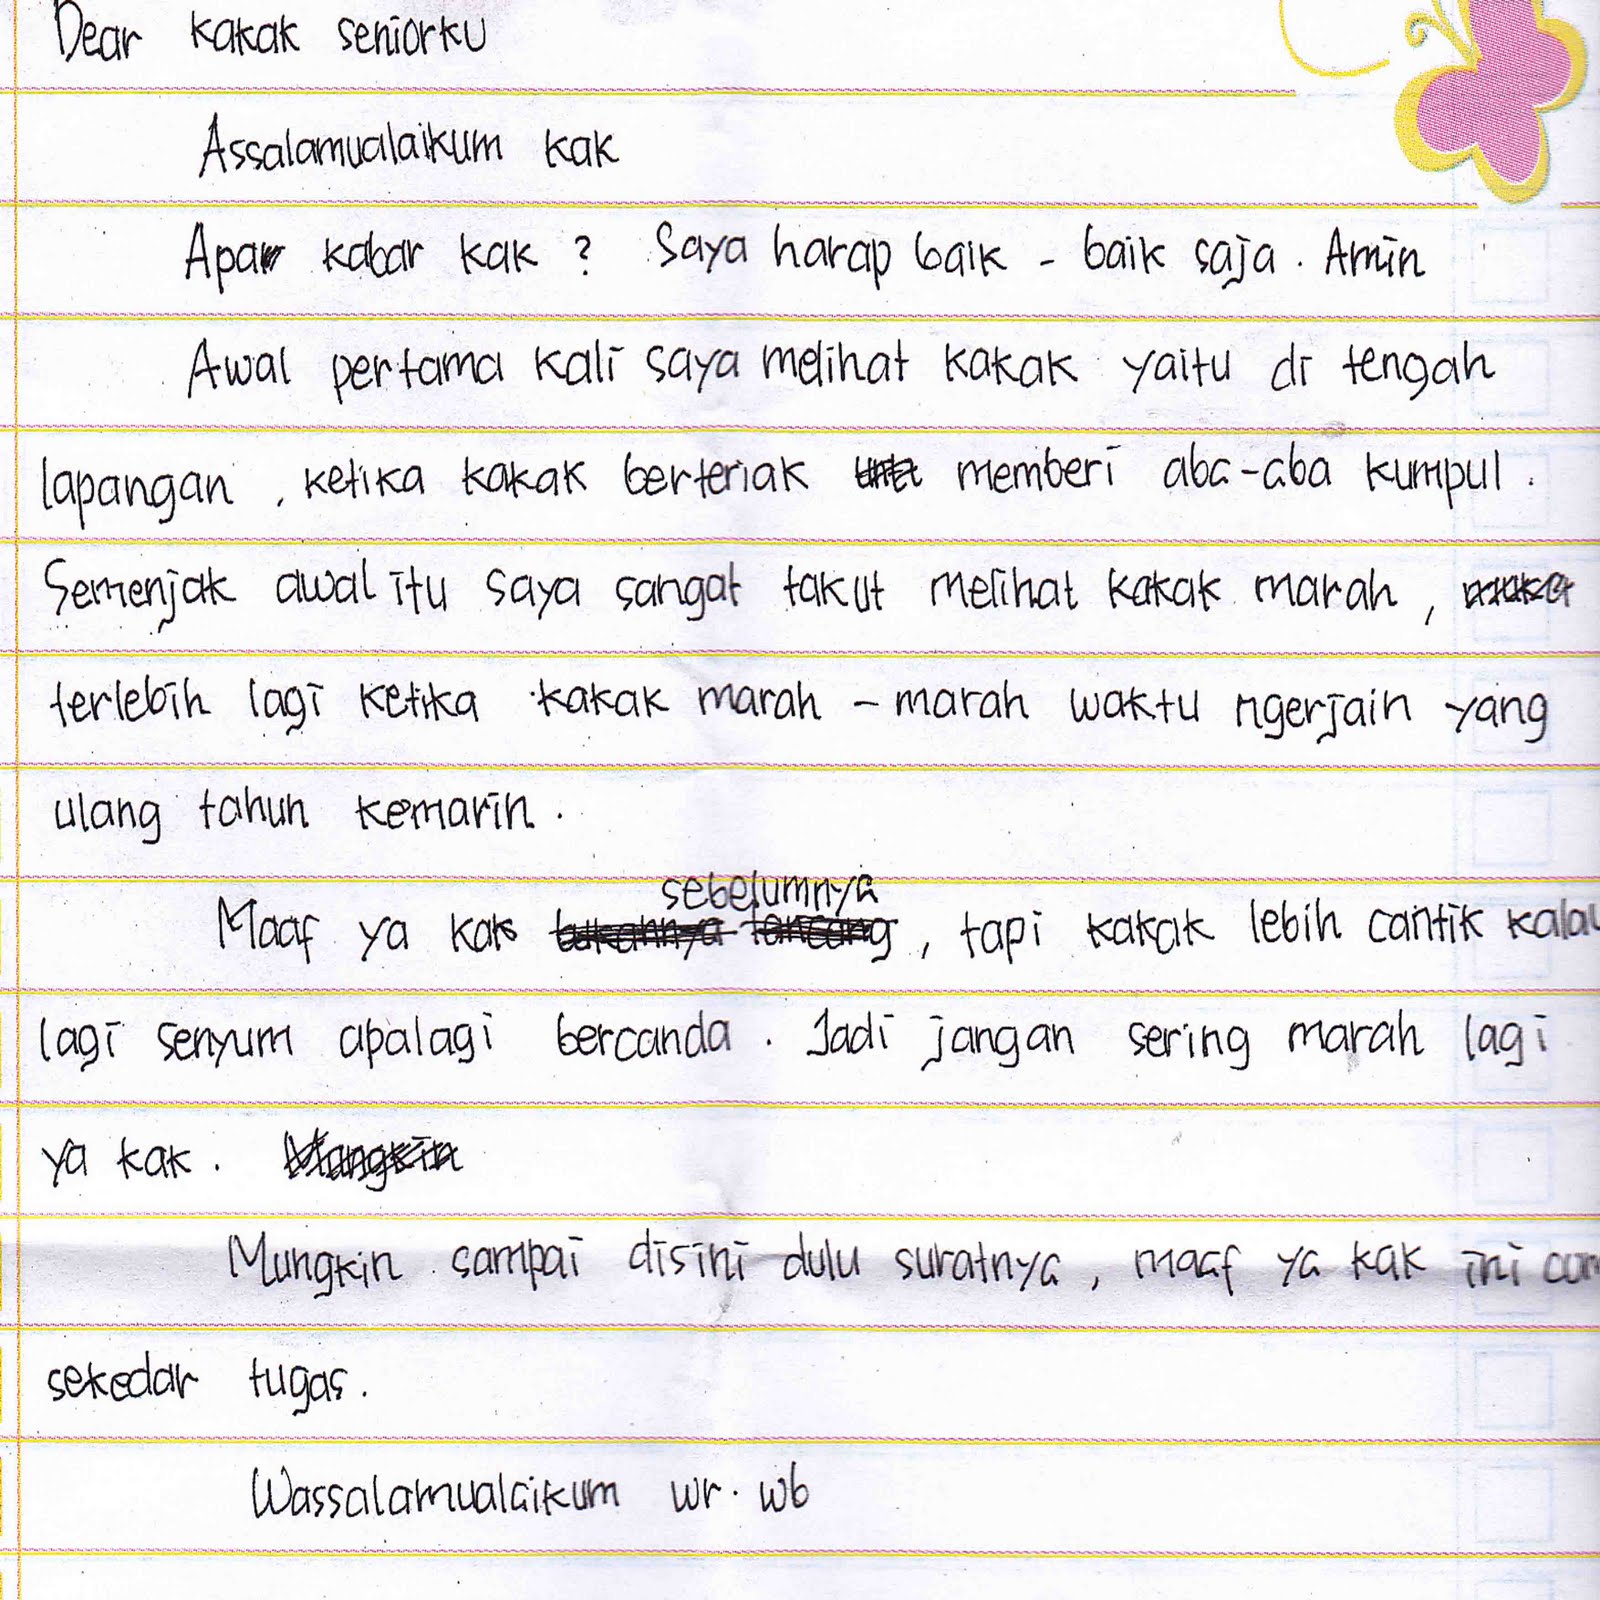 Dear kakak seniorku
Assalamualaikum kak
Apa kabar kak ? Saya harap baik - baik saja. Amin
Awal pertama kali saya melihat kakak yaitu di tengah
lapangan, ketika kakak berteriak memberi aba-aba kumpul.
Semenjak awal itu saya sangat takut melihat kakak marah,
terlebih lagi ketika kakak marah - marah waktu ngerjain yang
ulang tahun kemarin.
sebelumnya
Maaf ya kak bukannya lancang, tapi kakak lebih cantik kalau
lagi senyum apalagi bercanda. Jadi jangan sering marah lagi
ya kak. Mungkin
Mungkin sampai disini dulu suratnya, maaf ya kak ini
sekedar tugas.
Wassalamualaikum wr. wb